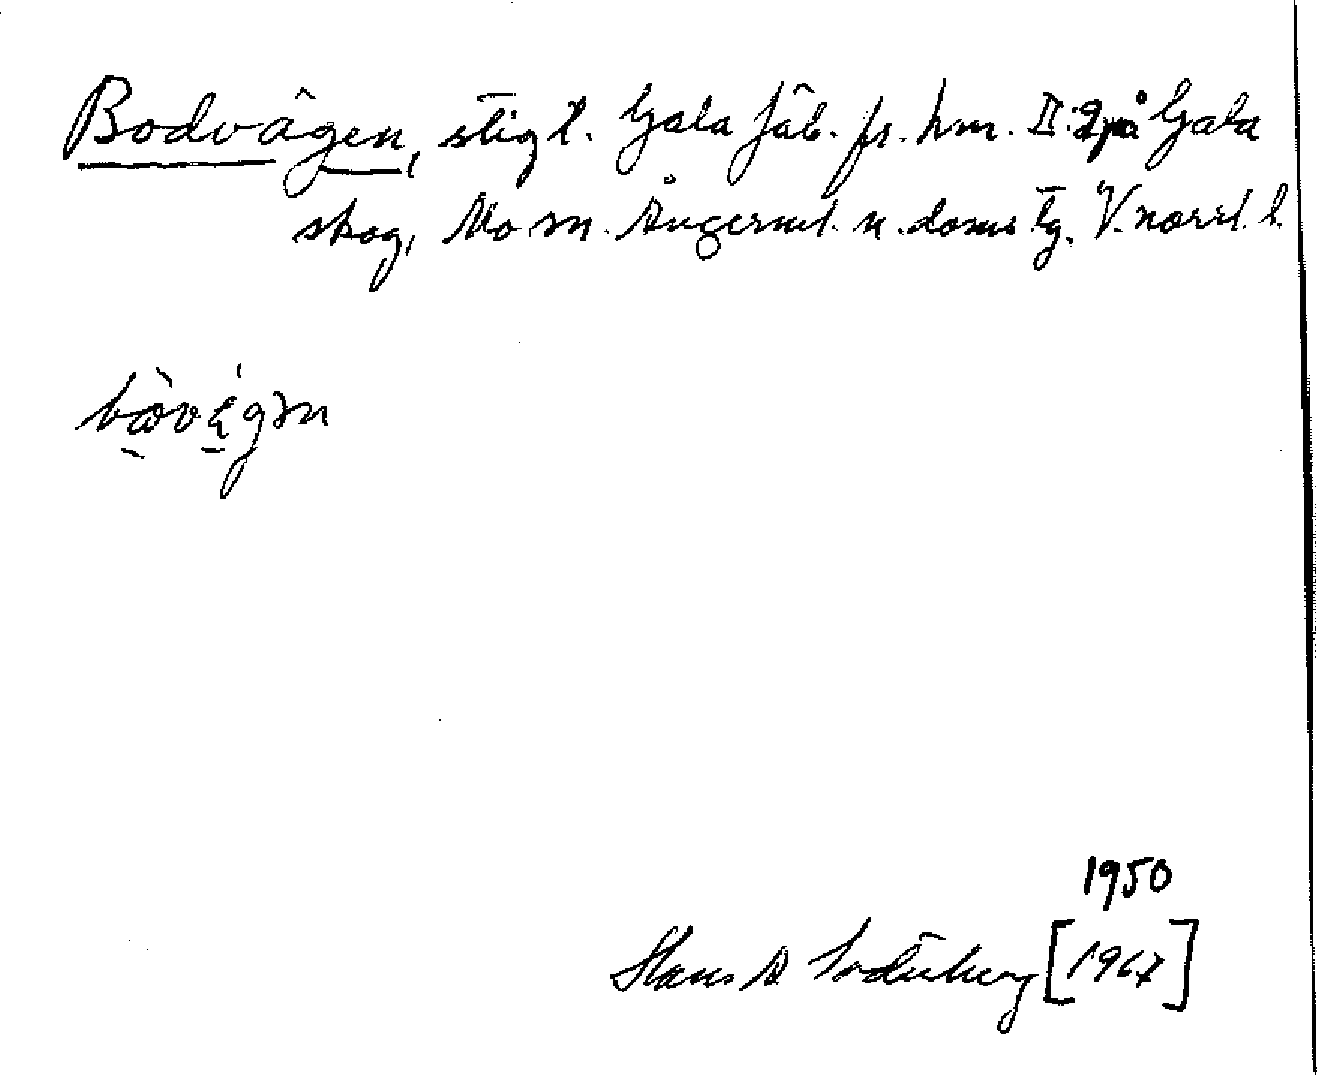 Bodvägen, stig t. Gala fäb. fr. hm. II:2 på Gala
skog, Mo sn. Ångerml. n. doms tg. V.norrl. l.
1950
Hans A Söderberg [1967]